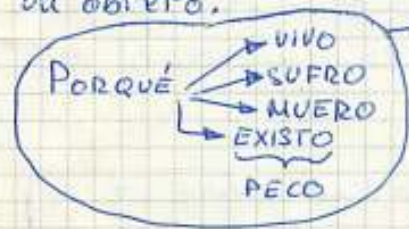 un obrero.
PORQUÉ
VIVO
SUFRO
MUERO
EXISTO
PECO